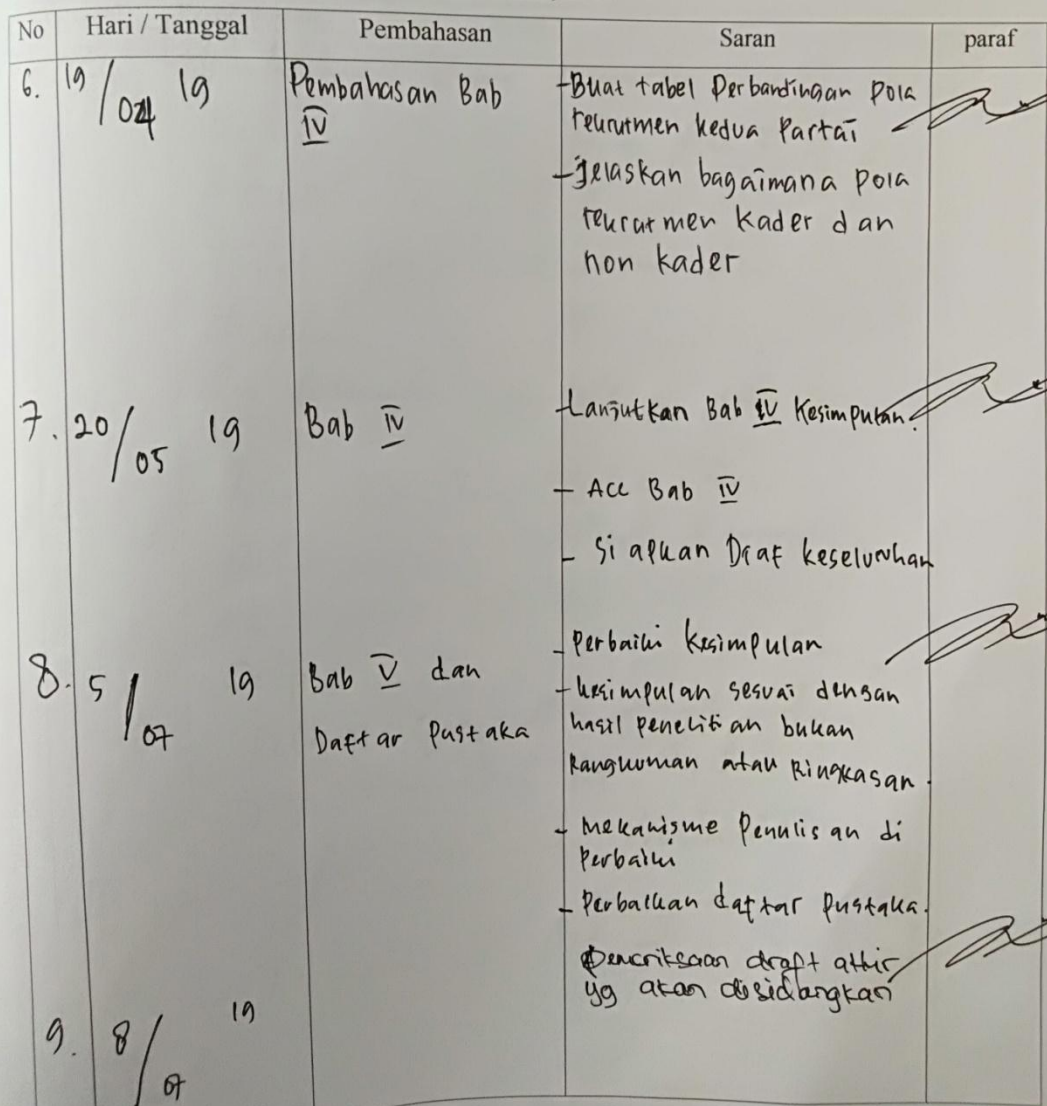 No Hari / Tanggal Pembahasan Saran paraf
6. 19/04 19 Pembahasan Bab IV
- Buat tabel Perbandingan Pola
rekrutmen kedua Partai
- Jelaskan bagaimana Pola
rekrutmen Kader dan
non kader
7. 20/05 19 Bab IV
- Lanjutkan Bab IV Kesimpulan.
- Acc Bab IV
- Siapkan Draf keseluruhan
8. 5/07 19 Bab V dan
Daftar Pustaka
- Perbaiki Kesimpulan
- Kesimpulan sesuai dengan
hasil Penelitian bukan
Rangkuman atau Ringkasan.
- Mekanisme Penulisan di
Perbaiki
- Perbaikan daftar Pustaka.
9. 8/07 19
Pemeriksaan draft akhir
yg akan disidangkan